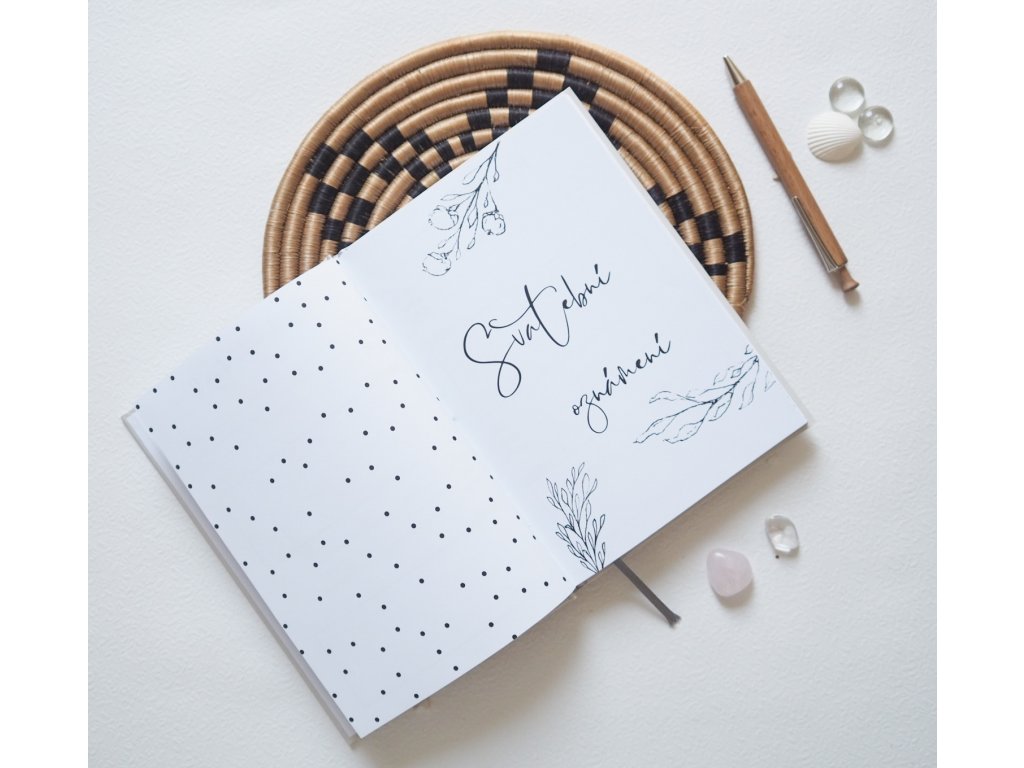 Svatební
oznámení